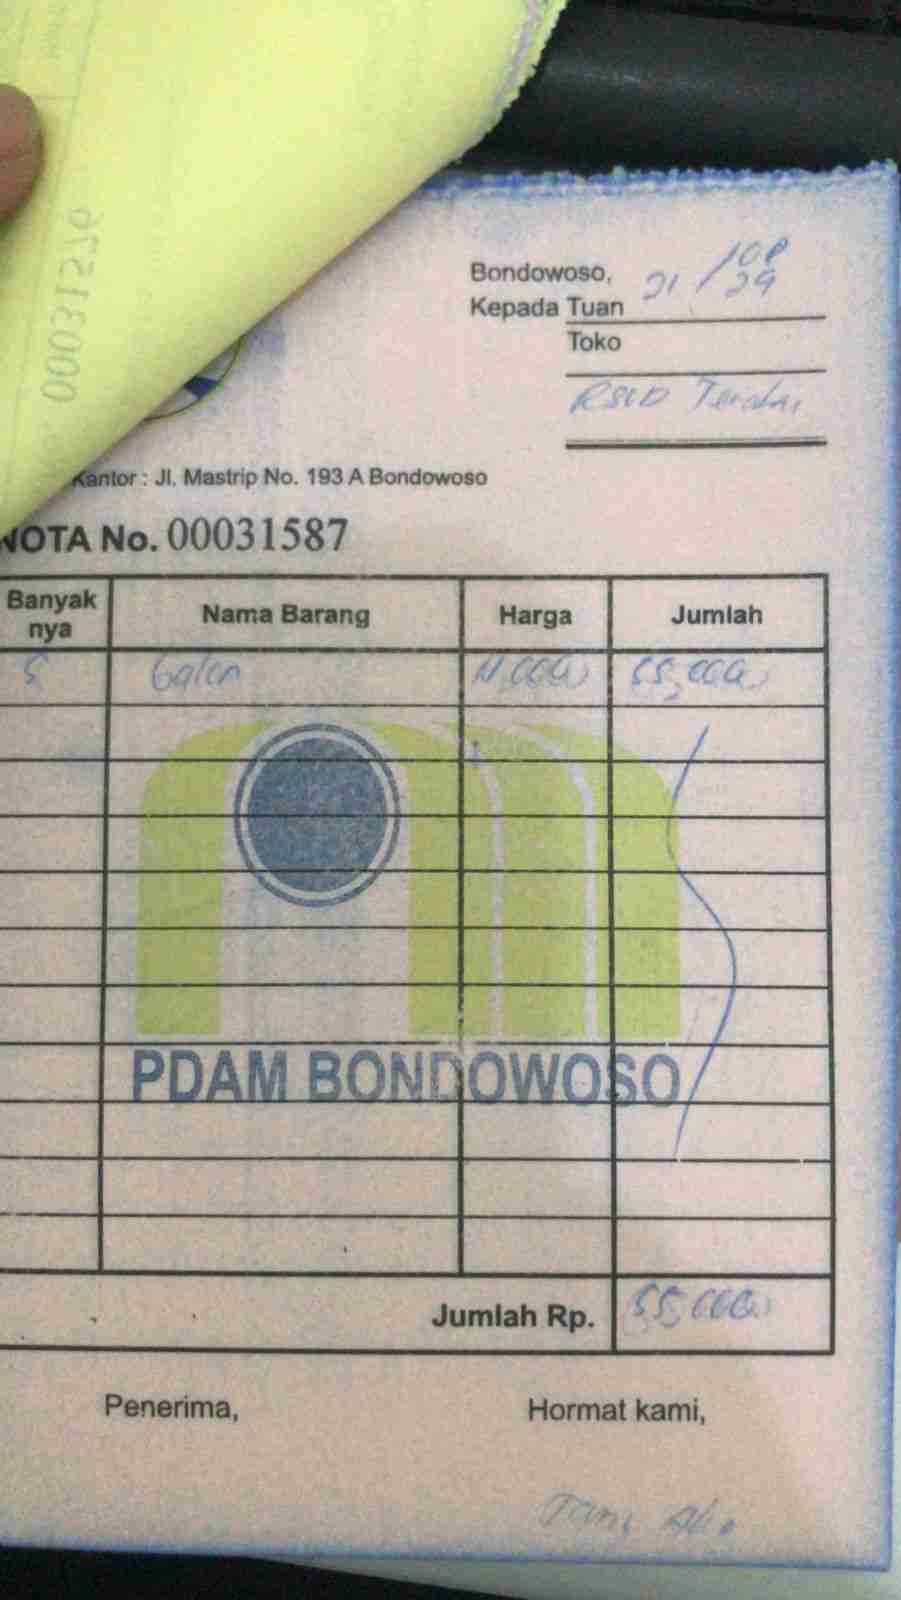 00031576
Bondowoso, 21/08
Kepada Tuan 24
Toko
RSUD
Kantor : Jl. Mastrip No. 193 A Bondowoso
NOTA No. 00031587
Banyak nya Nama Barang Harga Jumlah
5 Galon 11,000 55,000
PDAM BONDOWOSO
Jumlah Rp. 55,000
Penerima, Hormat kami,